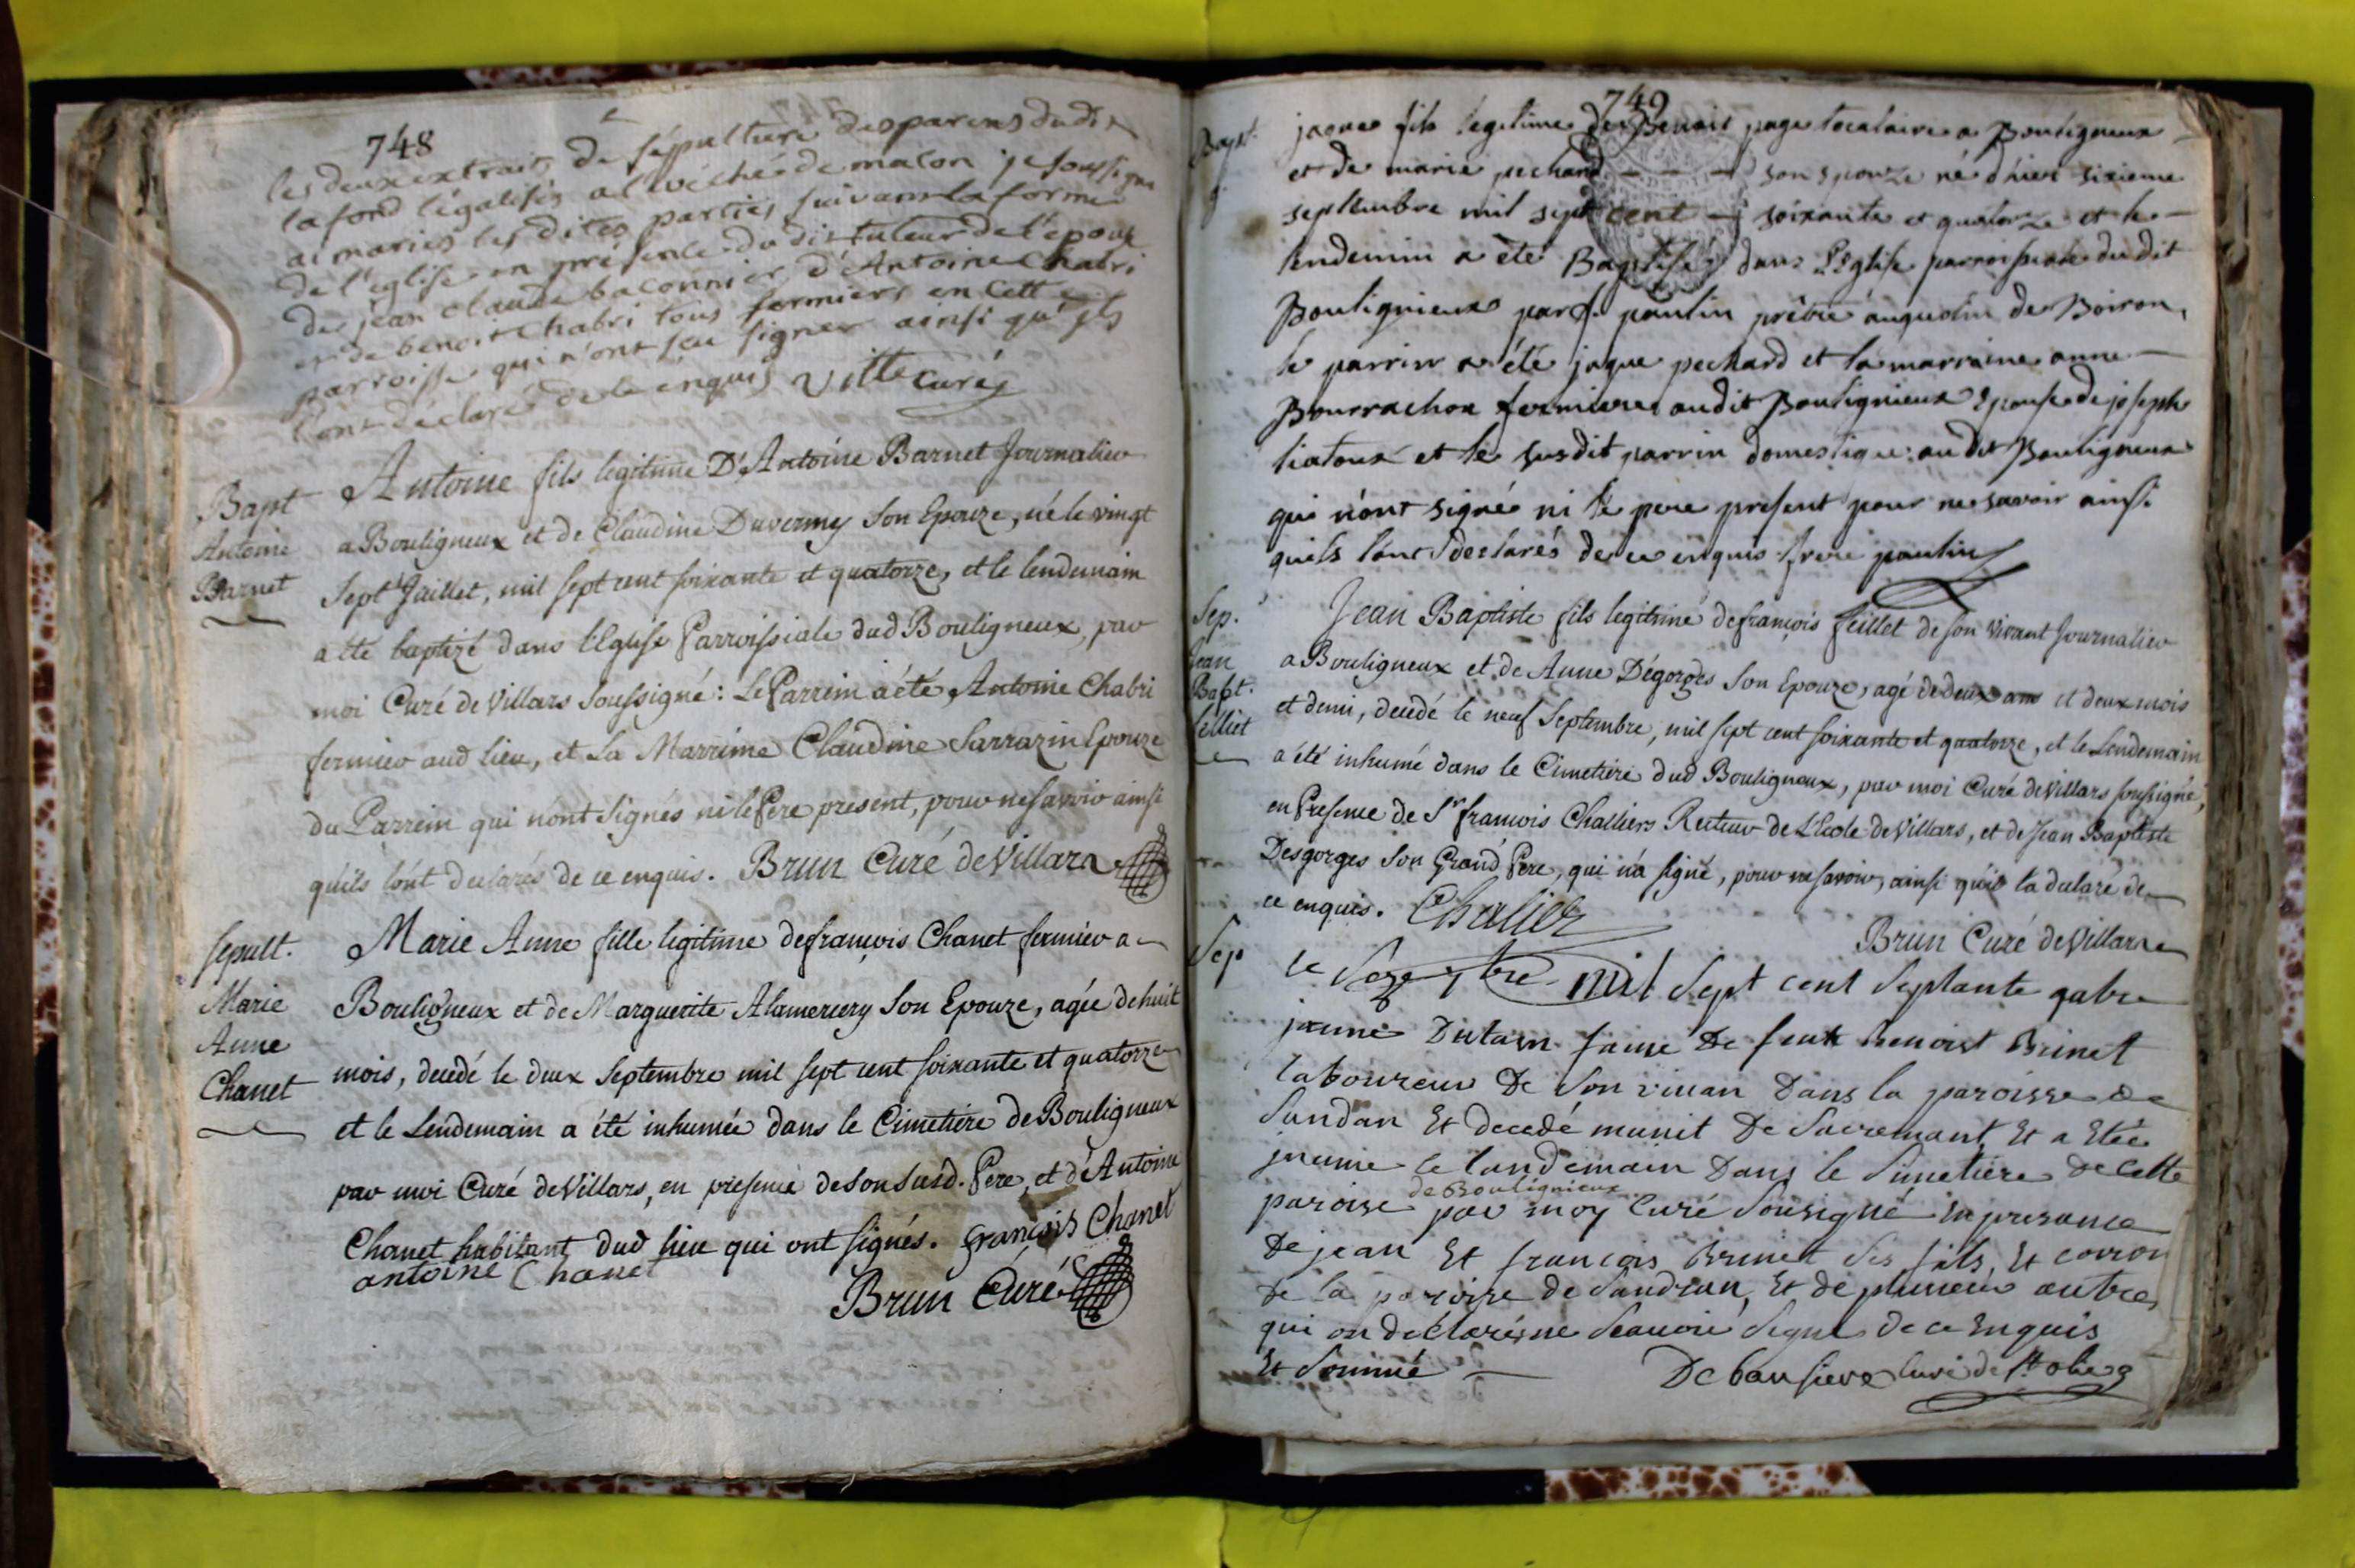 748
les deux extraits de sépulture des parens du dit
la fond légalisés a l'évêché de macon je soussigné
ai mariés les dites parties suivant la forme
de l'église en présence du dit tuteur de l'epoux
de jean claude baconnier d'Antoine Chabri
et de benoit Chabri tous fermiers en cette
parroisse qui n'ont seu signer ainsi qu'ils
l'ont déclaré de ce enquis Vitte curé
Bapt
Antoine
Barnet
Antoine fils legitime D'Antoine Barnet Journalier
a Bouligneux et de Claudine Duvernay Son Epouze, né le vingt
Sept Juillet, mil sept cent soixante et quatorze, et le lendemain
a été baptizé dans l'Eglise Parroissiale dud Bouligneux, par
moi Curé de Villars Soussigné : Le Parrein a été Antoine Chabri
fermier aud lieu, et La Marreine Claudine Sarrazin Epouze
du Parrein qui n'ont Signés ni le Pere present, pour ne savoir ainsi
qu'ils l'ont declarés de ce enquis. Brun Curé de Villars
sepult.
Marie
Anne
Chanet
Marie Anne fille legitime de françois Chanet fermier a
Bouligneux et de Marguerite Alamercery Son Epouze, agée de huit
mois, decedé le deux Septembre mil sept cent soixante et quatorze
et le Lendemain a été inhumée dans le Cimetiére de Bouligneux
par moi Curé de Villars, en presence de son susd. Pere, et d'Antoine
Chanet habitant dud lieu qui ont signés. françois Chanet
antoine Chanet
Brun Curé
749
Bapt.
jaque fils legitime de Benoit page locataire a Bouligneux
et de marie pechard son epouze né d'hier sixieme
septembre mil sept cent soixante et quatorze et le
lendemin a été Baptisé dans l'Eglise parroissiale du dit
Bouligneux par f. paulin prêtre auguotin de Boiron,
le parrin a été jaque pechard et la marraine anne
Bourrachon fermiere audit Bouligneux Epouse de joseph
liatoux et le susdit parrin domestique au dit Bouligneux
qui n'ont signé ni le pere present pour ne savoir ainsi
quils l'ont declarés de ce enquis frere paulin
Sep.
Jean
Bapt.
feilliet
Jean Baptiste fils legitime de françois feillet de son vivant Journalier
a Bouligneux et de Anne Dégorges Son Epouze, agé de deux ans et deux mois
et demi, decedé le neuf Septembre, mil sept cent soixante et quatorze, et le Lendemain
a été inhumé dans le Cimetiére dud Bouligneux, par moi Curé de Villars soussigné,
en Presence de Sr françois Challiers Recteur de L'Ecole de Villars, et de Jean Baptiste
Desgorges Son Grand Pere, qui n'a signé, pour ne savoir, ainsi qu'il l'a declaré de
ce enquis. Chalier
Brun Curé de Villars
Sep
le 7bre mil sept cent septante qatre
de feux Benoist Brinet
laboureur De Son vivan Dans la paroisse de
Sandran Et decedé munit De Sacremant Et a Etée
jnumé le landemain Dans le Simetiere De Cette
paroise de Bouligneux par moy Curé Sousigné En presance
De jean Et francois Brinet Ses fils, Et
de la paroise de Sandran, Et de plusieur autres
qui on declarés ne Scauoir Signe de ce Enquis
Et Sommé
curé de St olive